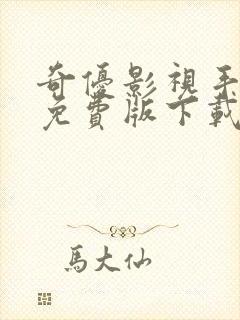 奇優影視手
免費版下載
馬大仙